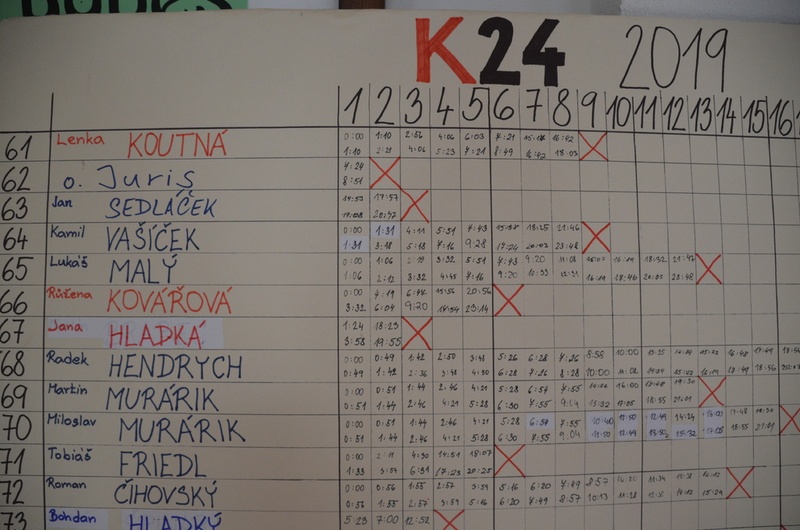 K24 2019
1 2 3 4 5 6 7 8 9 10 11 12 13 14 15 16
61 Lenka KOUTNÁ 0:00 1:10 2:56 4:06 6:03 7:21 15:14 16:42
1:10 2:21 4:06 5:23 7:21 8:49 16:42 18:03
62 o. Juris 7:24
8:51
63 Jan SEDLÁČEK 17:57
20:47
64 Kamil VAŠÍČEK 0:00 1:31 4:11 5:51 7:43 18:25 21:46
1:31 3:18 5:18 7:16 9:28 20:02 23:48
65 Lukáš MALÝ 0:00 1:06 2:19 3:32 5:51 7:43 9:20 11:01 18:32 21:42
1:06 2:12 3:32 4:45 7:16 9:20 10:33 12:31 16:19 17:46 20:05 23:48
66 Růžena KOVÁŘOVÁ 0:00 4:19 6:44 15:56 20:56
3:32 6:04 9:20 17:54 23:14
67 Jana HLADKÁ 1:24 18:23
3:58 19:55
68 Radek HENDRYCH 0:00 0:49 1:42 2:50 3:48 5:26 6:28 7:26 8:58 10:00
0:49 1:42 2:36 3:48 4:48 6:28 7:26 8:28 10:00 11:01
69 Martin MURÁRIK 0:00 0:51 1:44 2:46 4:21 5:28 6:54 7:55 16:00 19:30
0:51 1:44 2:46 4:21 5:28 6:30 7:55 9:04 17:05 18:55 21:01
70 Miloslav MURÁRIK 0:00 0:51 1:44 2:46 4:21 5:28 6:54 7:55 10:40 11:50 12:49 14:24 17:48 19:30
0:51 1:44 2:46 4:21 5:28 6:30 7:55 9:04 11:50 12:49 13:52 15:32 17:05 18:55 21:01
71 Tobiáš FRIEDL 0:00 2:11 4:30 14:51 18:07
1:33 3:54 6:31 17:23 20:25
72 Roman ČIHOVSKÝ 0:00 0:56 1:55 2:57 3:59 5:16 6:20 7:49 8:57
0:56 1:55 2:57 3:59 5:16 6:20 7:49 8:57 10:13 11:28
73 Bohdan HLADKÝ 5:23 7:00 12:52